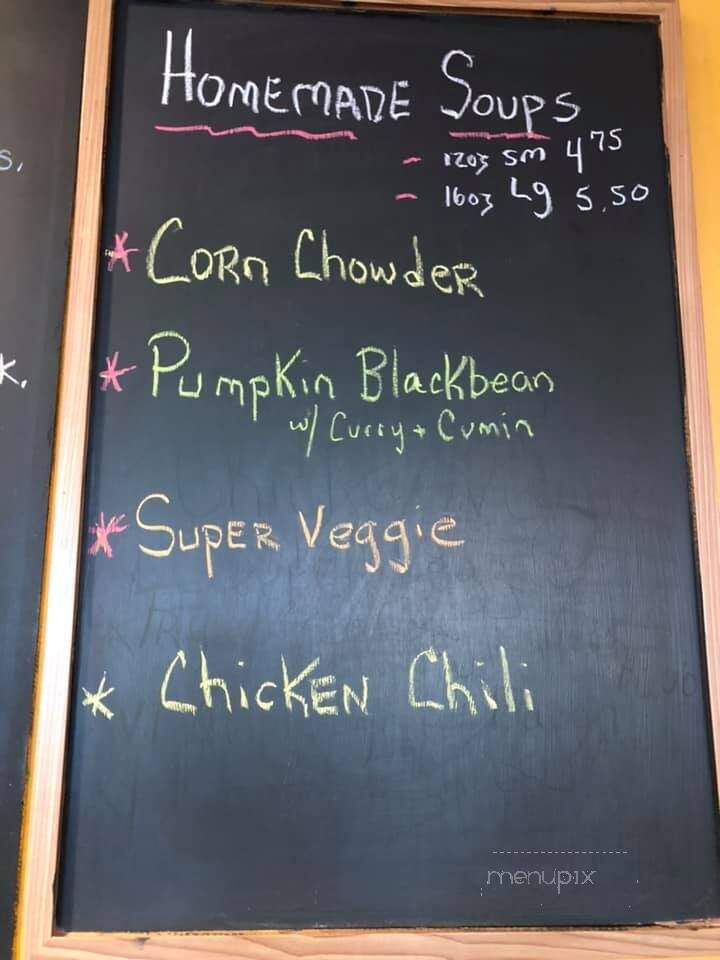 HOMEMADE SOUPS
- 12oz sm 4 75
- 16oz Lg 5.50
* CORn Chowder
* Pumpkin Blackbean
w/ Curry + Cumin
* SUPER Veggie
* ChicKEN Chili
s.
K.
menupix